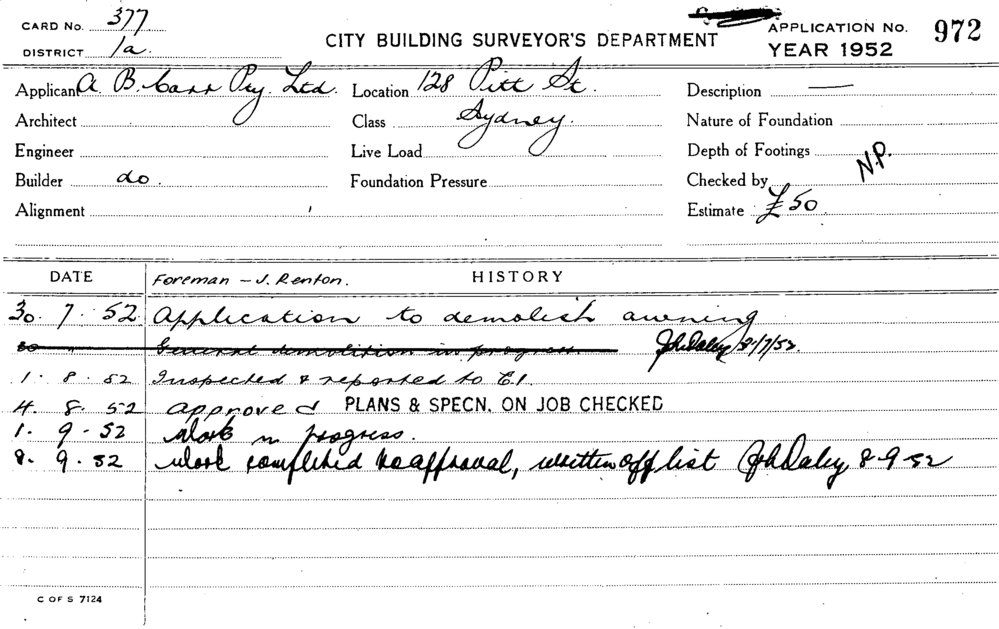 CARD No. 377
APPLICATION No. 972
DISTRICT 1a.
CITY BUILDING SURVEYOR'S DEPARTMENT
YEAR 1952
Applicant A. B. Carr Pty. Ltd. Location 128 Pitt St. Description —
Architect Class Sydney. Nature of Foundation
Engineer Live Load Depth of Footings
Builder do. Foundation Pressure Checked by N.P.
Alignment Estimate £50.
DATE Foreman – J. Renton. HISTORY
30. 7. 52 Application to demolish awning
30 " General demolition in progress
1. 8. 52 Inspected & reported to C.I.
4. 8. 52 Approved PLANS & SPECN. ON JOB CHECKED
1. 9. 52 Work in progress.
8. 9. 52 Work completed as approval, written off list Jh Daley 8-9-52
C OF S 7124